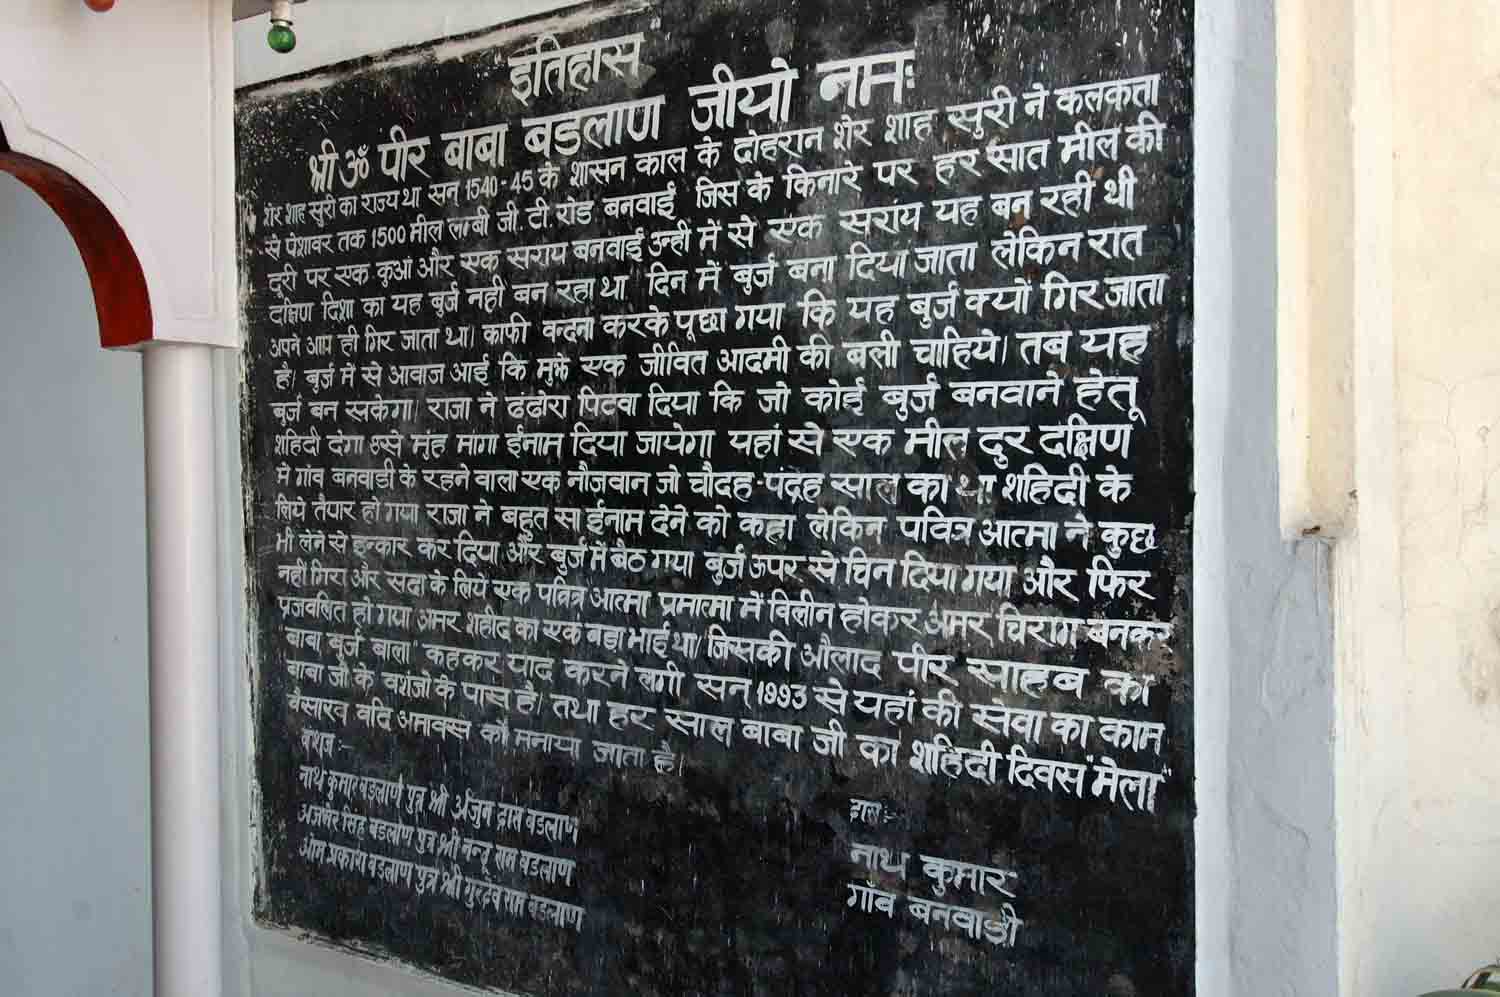 इतिहास
श्री ॐ पीर बाबा बडलाण जीयो नमः
शेर शाह सुरी का राज्य था सन 1540-45 के शासन काल के दोहरान शेर शाह सुरी ने कलकता
से पेशावर तक 1500 मील लम्बी जी. टी. रोड बनवाई जिस के किनारे पर हर सात मील की
दुरी पर एक कुआं और एक सराय बनवाई उन्हीं में से एक सरांय यह बन रही थी
दक्षिण दिशा का यह बुर्ज नही बन रहा था दिन में बुर्ज बना दिया जाता लेकिन रात
अपने आप ही गिर जाता था। काफी वन्दना करके पूछा गया कि यह बुर्ज क्यों गिर जाता
है। बुर्ज में से आवाज आई कि मुझे एक जीवित आदमी की बली चाहिये। तब यह
बुर्ज बन सकेगा। राजा ने ढंढोरा पिटवा दिया कि जो कोई बुर्ज बनवाने हेतू
शहिदी देगा उसे मुंह मागा ईनाम दिया जायेगा यहां से एक मील दुर दक्षिण
मे गाँव बनवाडी के रहने वाला एक नौजवान जो चौदह-पंद्रह साल का था शहिदी के
लिये तैयार हो गया राजा ने बहुत सा ईनाम देने को कहा लेकिन पवित्र आत्मा ने कुछ
भी लेने से इन्कार कर दिया और बुर्ज में बैठ गया बुर्ज ऊपर से चिन दिया गया और फिर
नहीं गिरा और सदा के लिये एक पवित्र आत्मा प्रमात्मा में विलीन होकर अमर चिराग बनकर
प्रजवलित हो गया अमर शहीद का एक बडा भाई था। जिसकी औलाद पीर साहब को
"बाबा बुर्ज बाला" कहकर याद करने लगी सन् 1993 से यहां की सेवा का काम
बाबा जी के वशंजो के पास है। तथा हर साल बाबा जी का शहिदी दिवस "मेला"
वैसाख वदि अमावस्स कौ मनाया जाता है।
वशज :-
नाथ कुमार बडलाण पुत्र श्री अर्जुन दास बडलाण
अजमेर सिंह बडलाण पुत्र श्री नन्दू राम बडलाण
ओम प्रकाश बडलाण पुत्र श्री गुरदेव राम बडलाण
दास :-
नाथ कुमार
गाँव बनवाडी